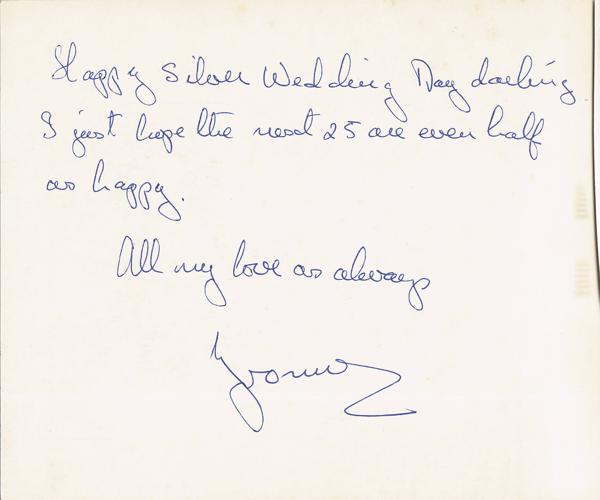 Happy Silver Wedding Day darling
I just hope the next 25 are even half
as happy.
All my love as always
Yvonne